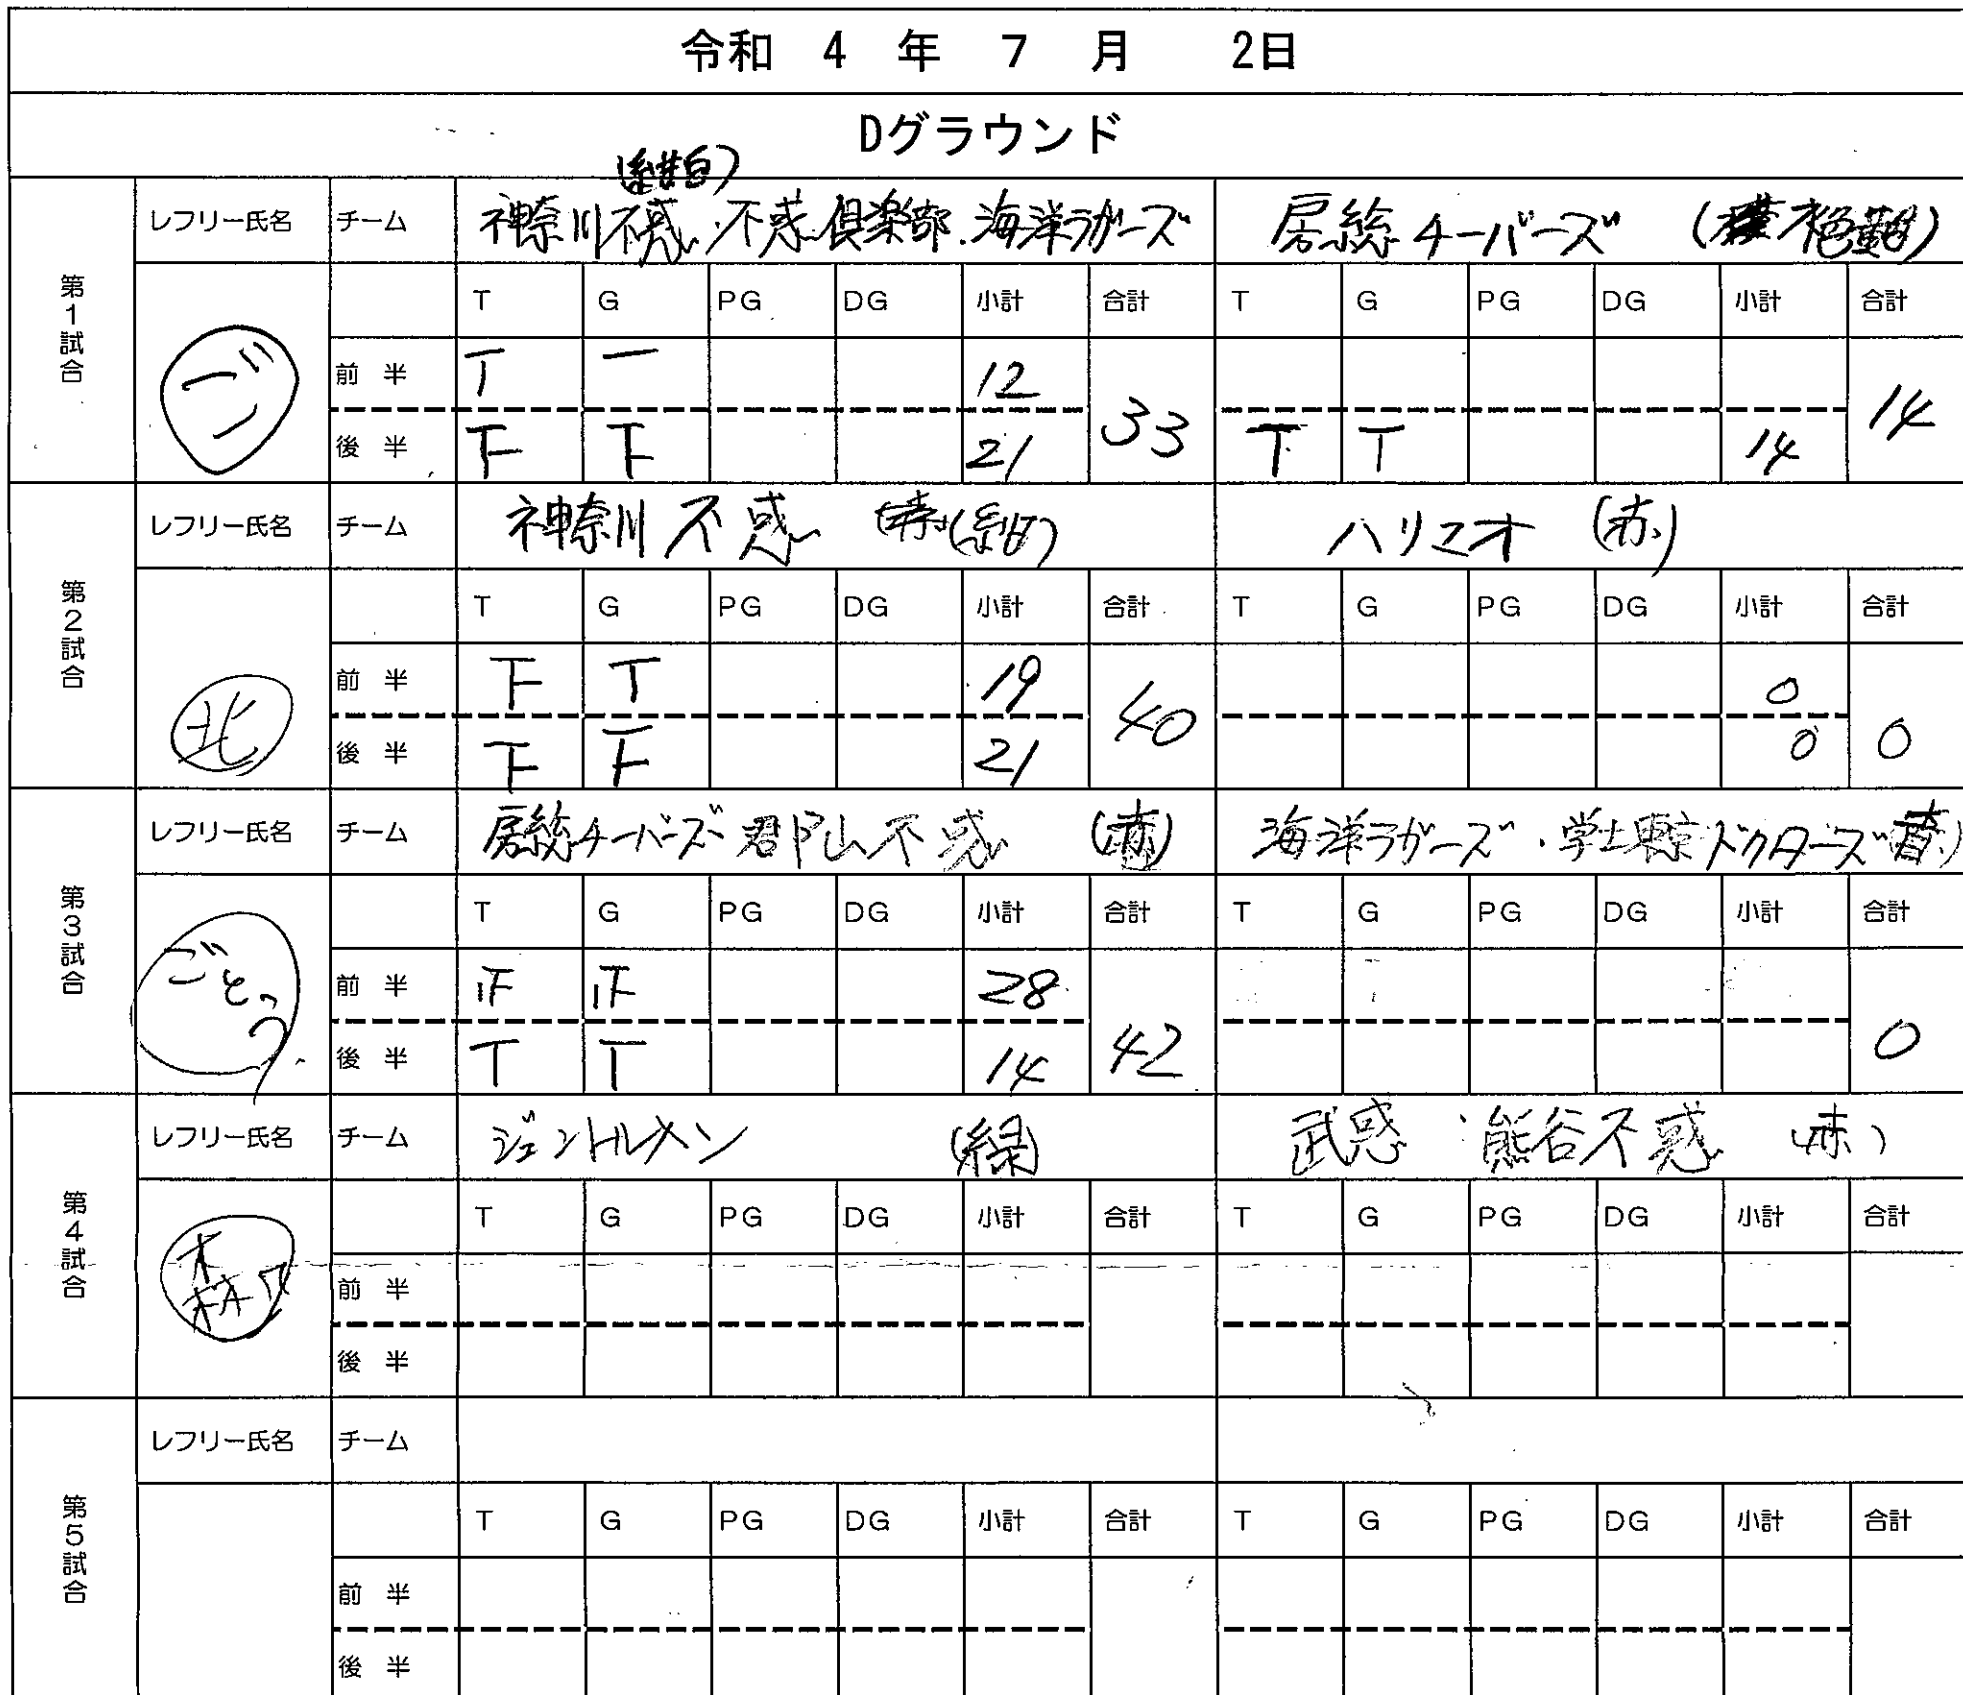 令和 4 年 7 月 2日
Dグラウンド
(紺白)
第1試合 レフリー氏名 チーム 神奈川不惑・不惑倶楽部・海洋ラガーズ 房総チーバーズ
T G PG DG 小計 合計 T G PG DG 小計 合計
前半 T 一 12 33 14
後半 下 下 21 T T 14
第2試合 レフリー氏名 チーム 神奈川不惑 (紺) ハリマオ (赤)
北
T G PG DG 小計 合計 T G PG DG 小計 合計
前半 下 T 19 40 0 0
後半 下 下 21 0
第3試合 レフリー氏名 チーム 房総チーバーズ 郡山不惑 海洋ラガーズ・学士東京ドクターズ
ごとう
T G PG DG 小計 合計 T G PG DG 小計 合計
前半 正 正 28 42 0
後半 T T 14
第4試合 レフリー氏名 チーム ジェントルメン (緑) 武惑・熊谷不惑 (赤)
T G PG DG 小計 合計 T G PG DG 小計 合計
前半
後半
第5試合 レフリー氏名 チーム
T G PG DG 小計 合計 T G PG DG 小計 合計
前半
後半